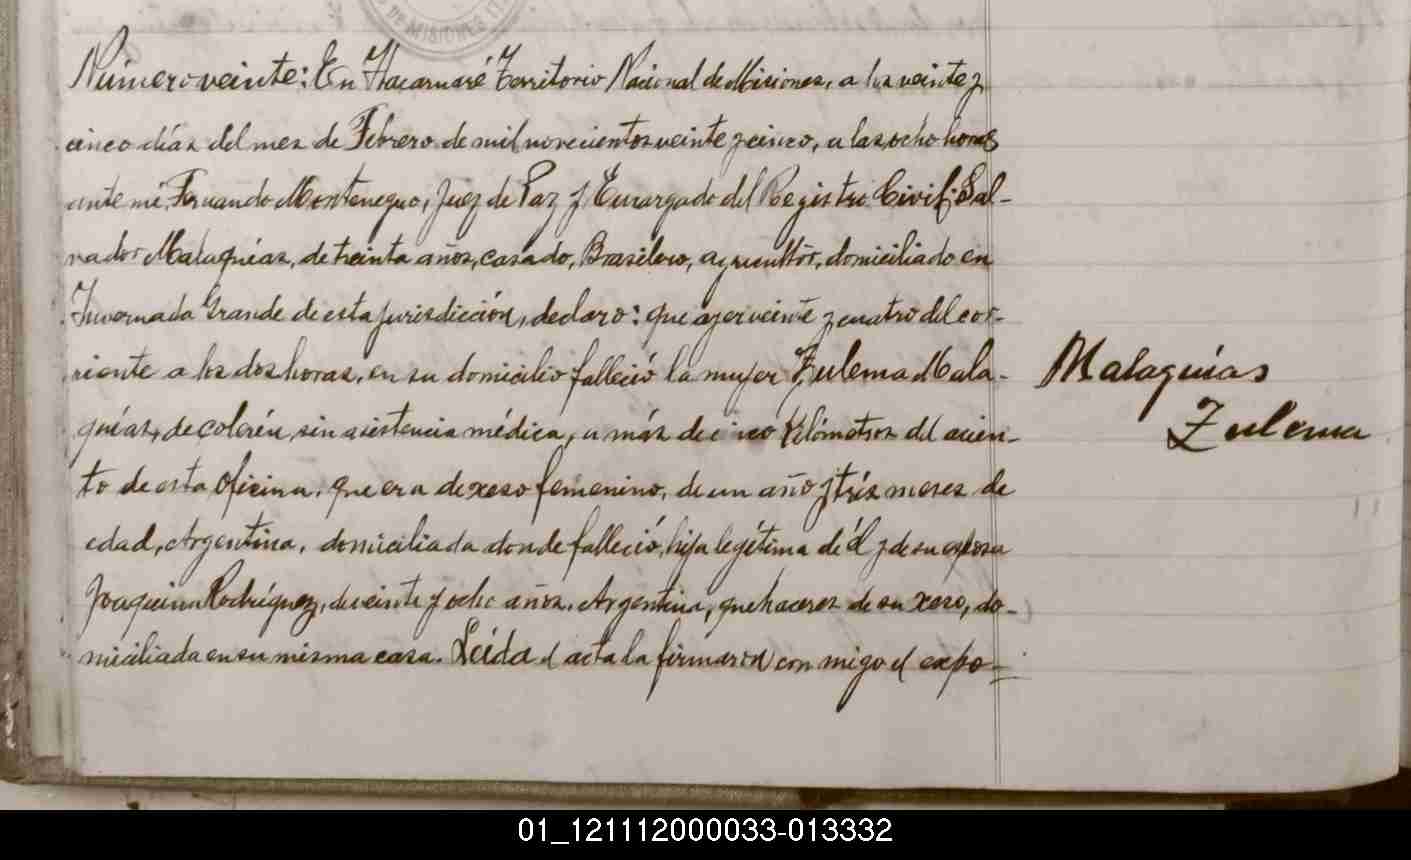 DE MISIONES
Número veinte: En Itacaruaré Territorio Nacional de Misiones, a los veinte y
cinco días del mes de Febrero de mil novecientos veinte y cinco, a las ocho horas
ante mí, Fernando Montenegro, Juez de Paz y Encargado del Registro Civil; Sal-
vador Malaquías, de treinta años, casado, Brasilero, agricultor, domiciliado en
Invernada Grande de esta jurisdicción, declaro: que ayer veinte y cuatro del cor-
riente a los dos horas, en su domicilio falleció la mujer Zulema Mala-
quías, de colerín, sin asistencia médica, a más de cinco Kilómetros del asien-
to de esta Oficina, que era de xeso femenino, de un año y trés meses de
edad, Argentina, domiciliada donde falleció, hija legítima de él y de su esposa
Joaquina Rodríguez, de veinte y ocho años, Argentina, quehaceres de su xeso, do-
miciliada en su misma casa. Leída el acta la firmaron con migo el expo-
Malaquías
Zulema
01_121112000033-013332